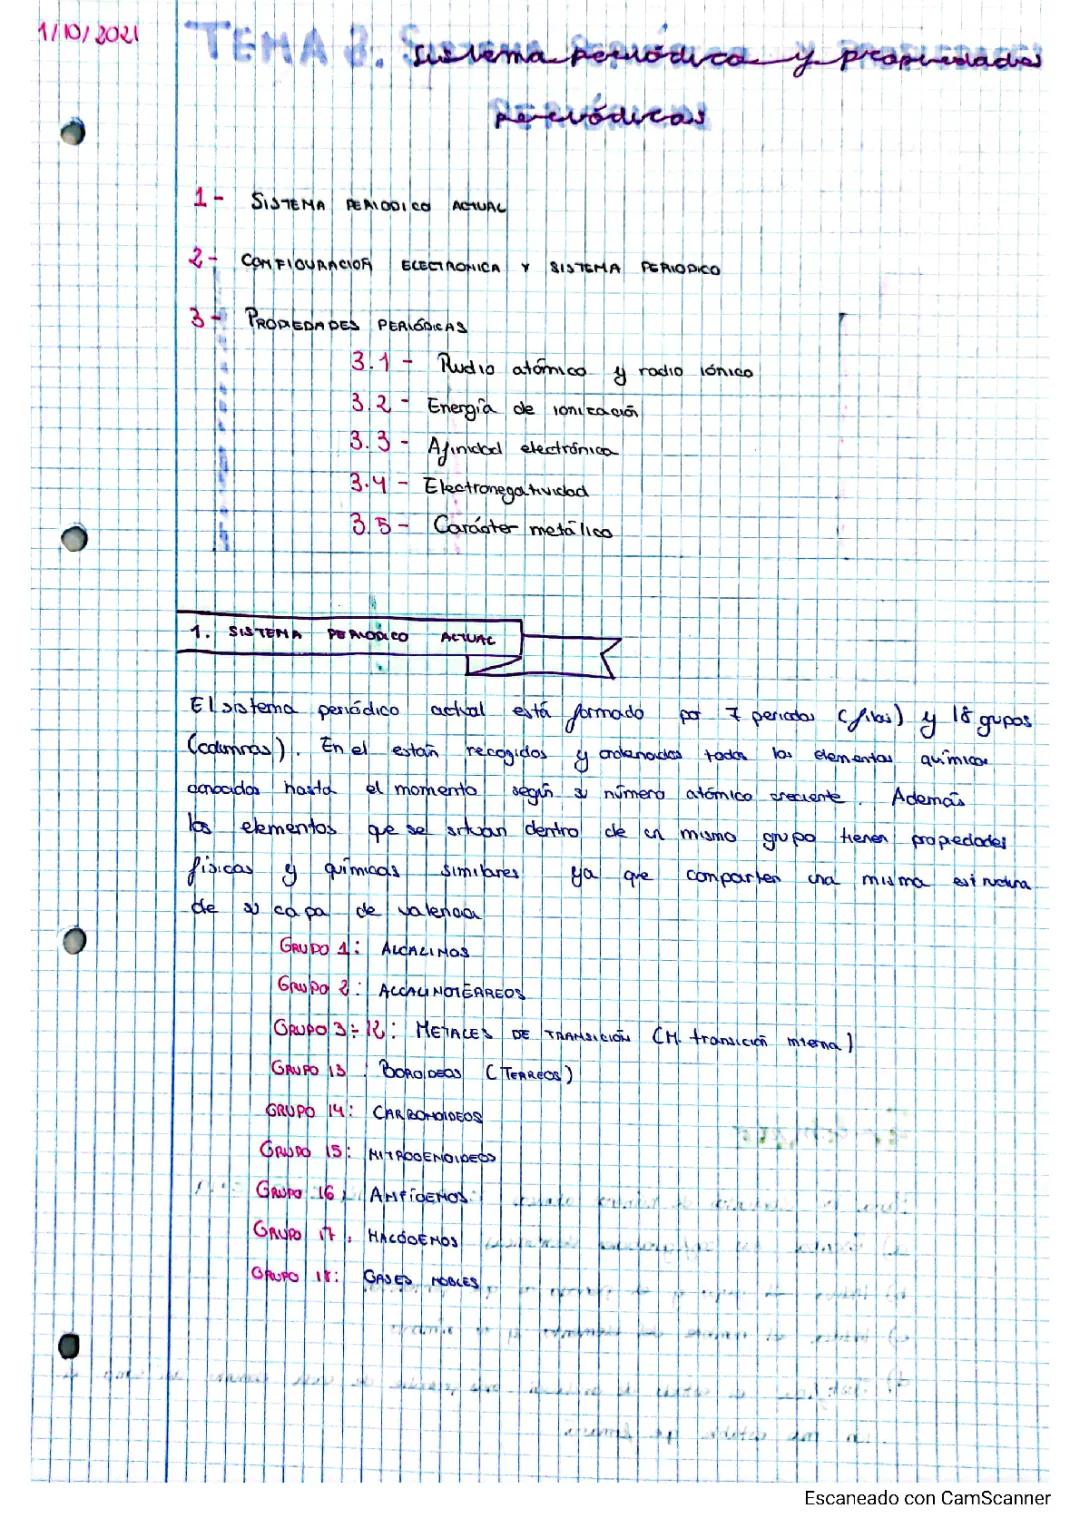 1/10/2021
TEMA 3. Sistema periódico y propiedades
periódicas
1- SISTEMA PERIODICO ACTUAL
2- CONFIGURACIÓN ELECTRONICA Y SISTEMA PERIODICO
3- PROPIEDADES PERIÓDICAS
3.1- Radio atómico y radio iónico
3.2- Energía de ionización
3.3- Afinidad electrónica
3.4- Electronegatividad
3.5- Carácter metálico
1. SISTEMA PERIODICO ACTUAL
El sistema periódico actual está formado por 7 periodos (filas) y 18 grupos
(columnas). En el están recogidos y ordenados todos los elementos químicos
conocidos hasta el momento según su número atómico creciente. Además
los elementos que se situan dentro de un mismo grupo tienen propiedades
físicas y químicas similares ya que comparten una misma estructura
de su capa de valencia
GRUPO 1: ALCALINOS
GRUPO 2: ALCALINOTÉRREOS
GRUPO 3-12: METALES DE TRANSICIÓN (M. transición interna)
GRUPO 13: BOROIDEOS (TERREOS)
GRUPO 14: CARBONOIDEOS
GRUPO 15: NITROGENOIDEOS
GRUPO 16: ANFÍGENOS
GRUPO 17: HALÓGENOS
GRUPO 18: GASES NOBLES
Escaneado con CamScanner